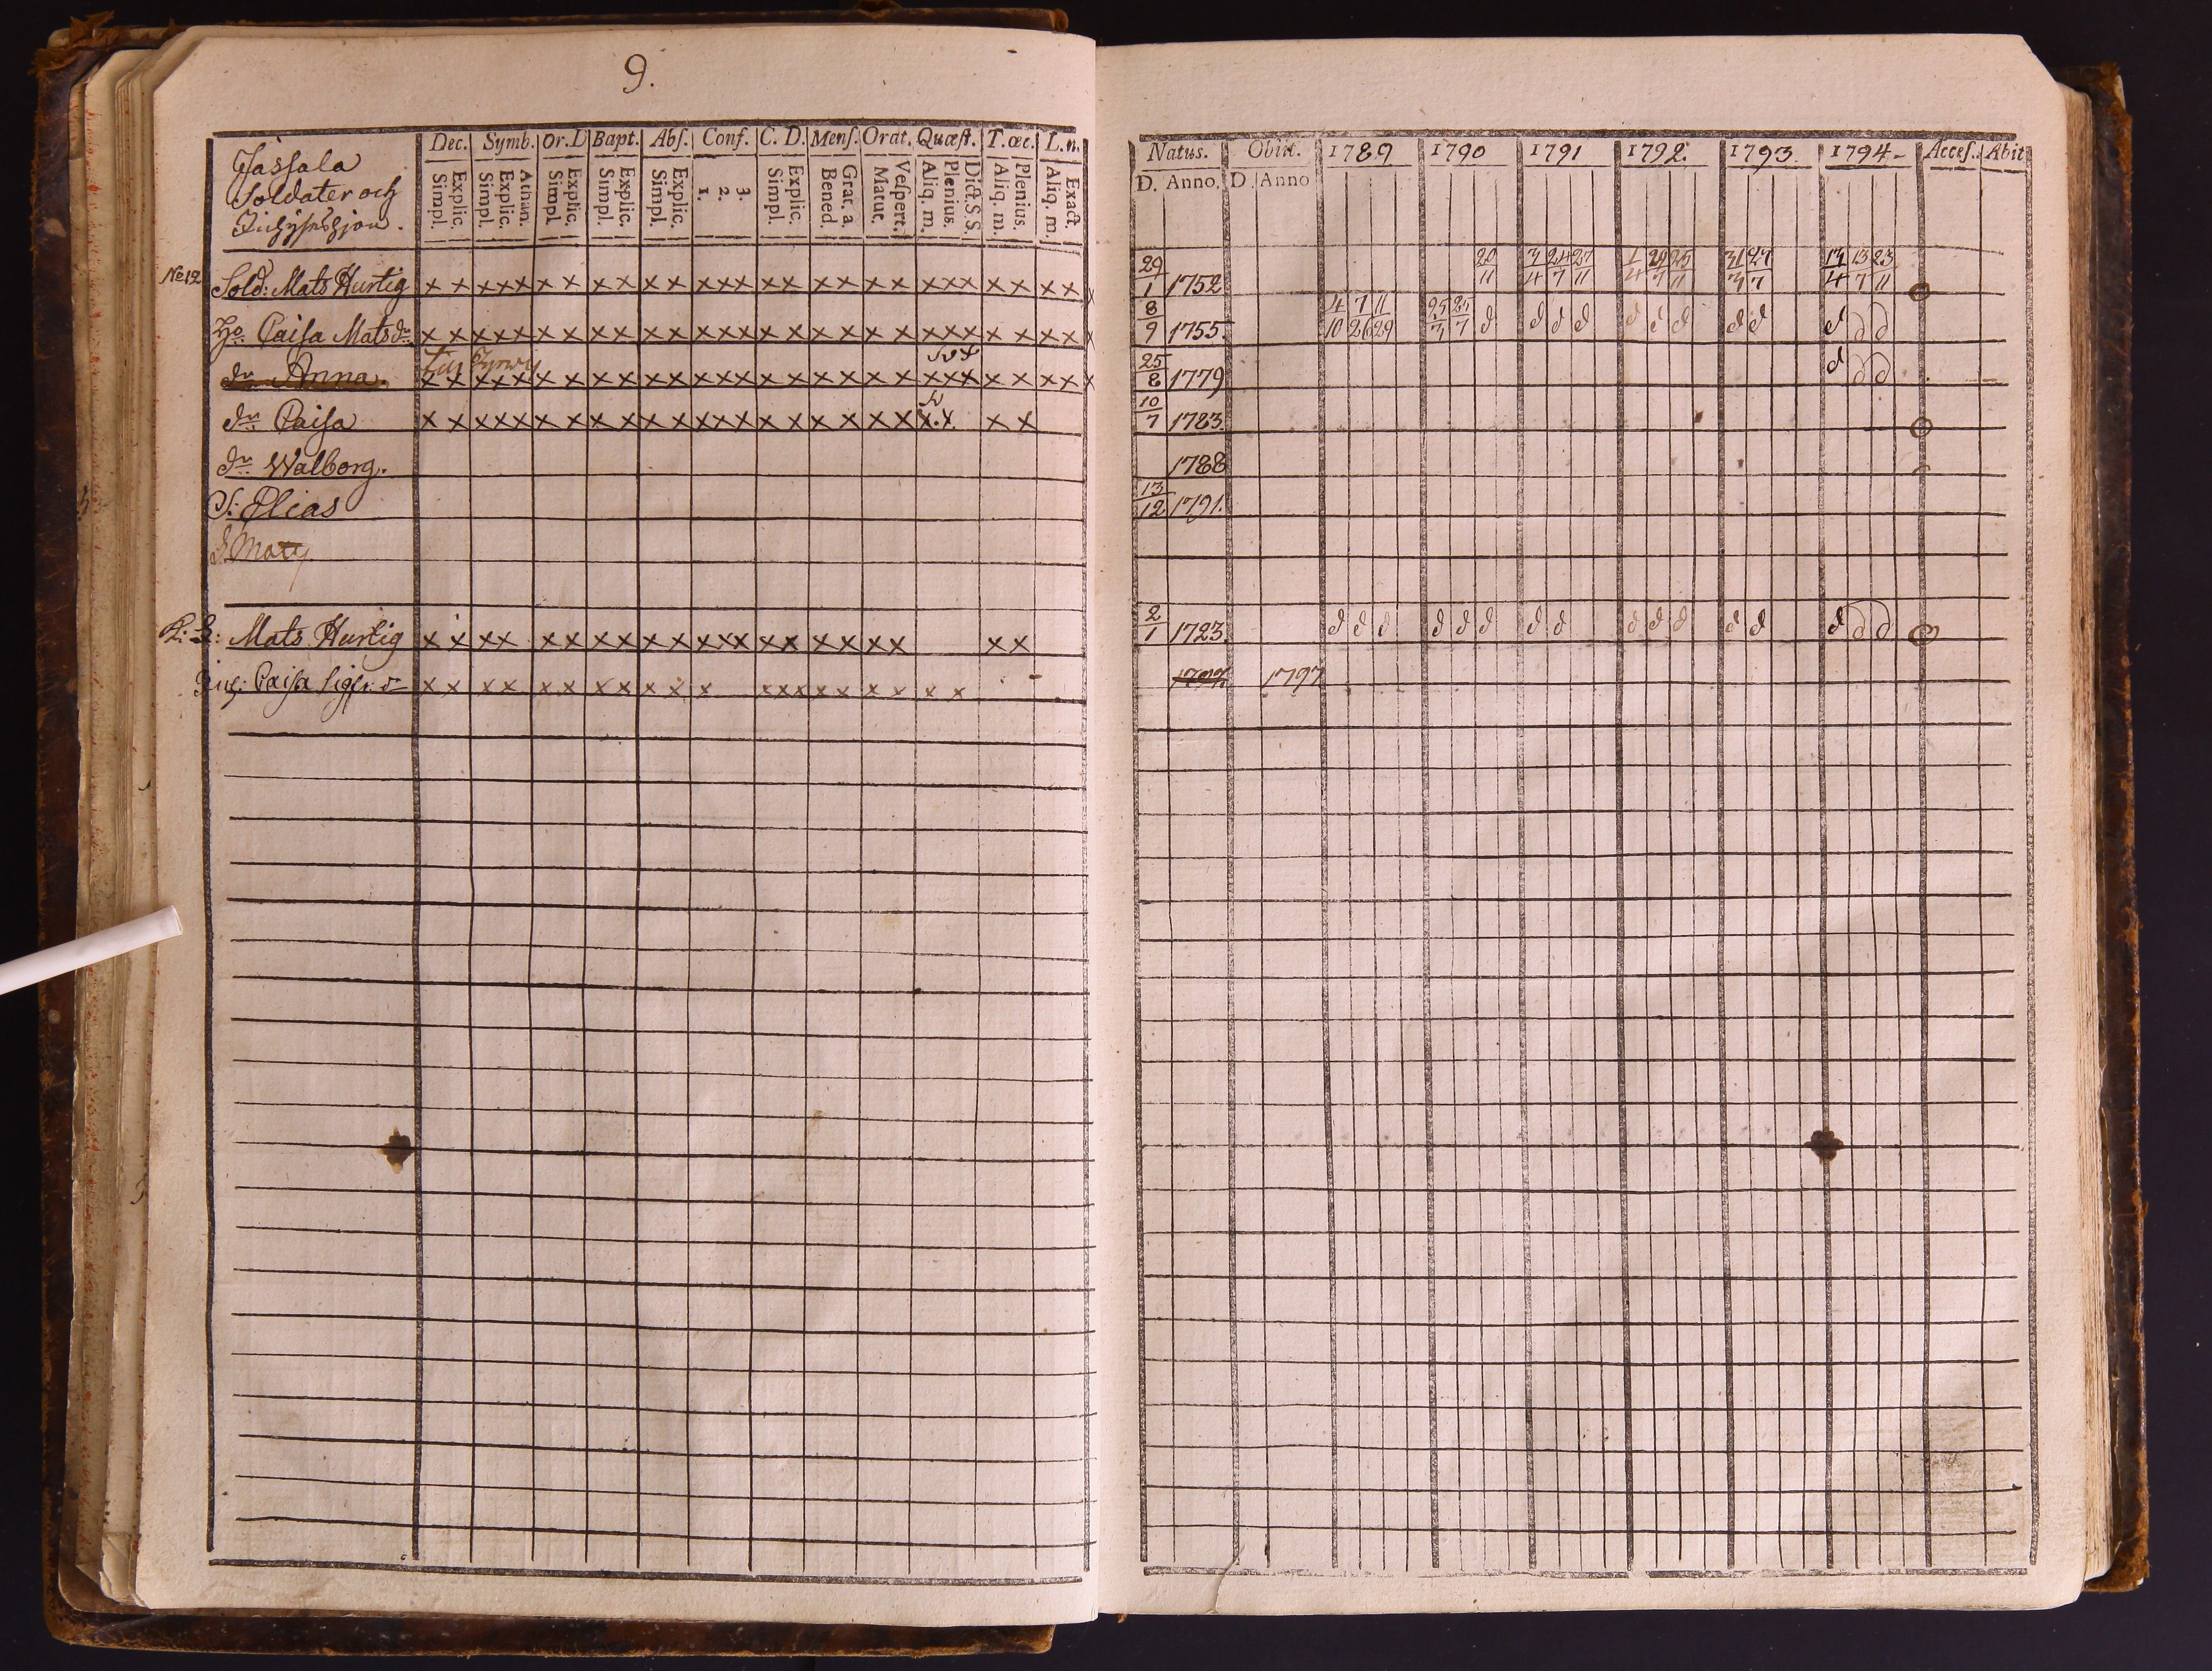 9.
Jassala
Soldater och
Dec. Symb. Or.D Bapt. Abs. Conf. C. D. Mens. Orat. Quæst. T. œc. L. n.
Simpl. Explic. Simpl. Explic. Athan. Simpl Explic. Simpl. Explic. Simpl. Explic. 1. 2. 3. Simpl. Explic. Bened. Grat. a. Matut. Vespert. Aliq. m. Plenius. Dict. S. S. Aliq. m. Plenius. Aliq. m. Exact.
No 12 Sold: Mats Hurtig x x x x x x x x x x x x x x x x x x x x x x x x x x x
Caisa Mats dr x x x x x x x x x x x x x x x x x x x x x x x x x x x
dr Anna. x x x x x x x x x x x x x x x x x x x x x x x x x x x
dr Caisa x x x x x x x x x x x x x x x x x x x x x x x x
dr Walborg.
S: Elias
S. Mats
Mats Hurtig x x x x x x x x x x x x x x x x x x x x x
Caisa x x x x x x x x x x x x x x x x x x x x
Natus. Obiit. 1789 1790 1791 1792. 1793. 1794- Acces. Abiit
D. Anno. D. Anno
29/1 1752 20/11 3/4 24/7 27/11 1/4 29/7 25/11 13/4 13/7 23/11
8/9 1755. 4/10 7/26 11/29 d d d d d d d d d d d d
25/8 1779 d d d
10/7 1783.
1788
13/12 1791.
2/1 1723. d d d d d d d d d d d d d d d d
1797